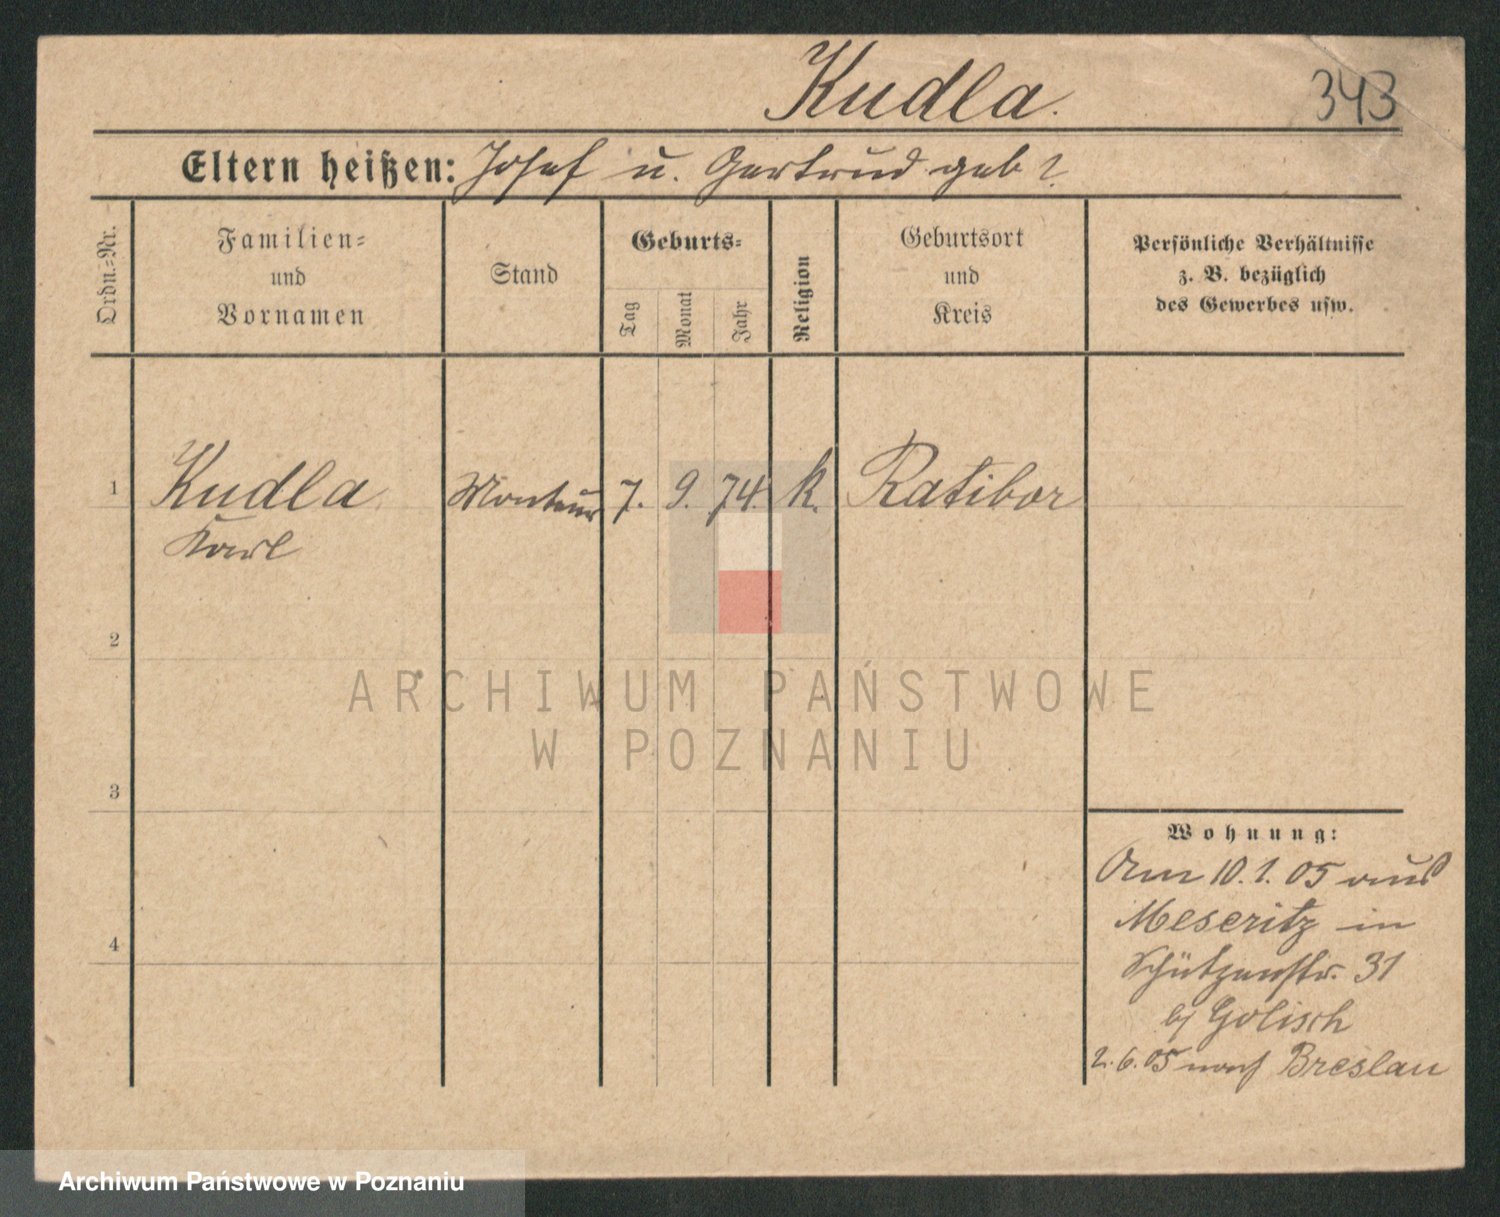 Kudla.
343
Eltern heißen: Josef u. Gertrud geb ?
Ordn.-Nr.
Familien- und Vornamen
Stand
Geburts-
Tag
Monat
Jahr
Religion
Geburtsort und Kreis
Persönliche Verhältnisse
z. B. bezüglich
des Gewerbes usw.
1 Kudla Monteur 7. 9. 74. k. Ratibor
Karl
2
ARCHIWUM PAŃSTWOWE
W POZNANIU
3
Wohnung:
Am 10. 1. 05 aus
Meseritz in
Schützenstr. 31
4
b/ Golisch
2. 6. 05 nach Breslau
Archiwum Państwowe w Poznaniu